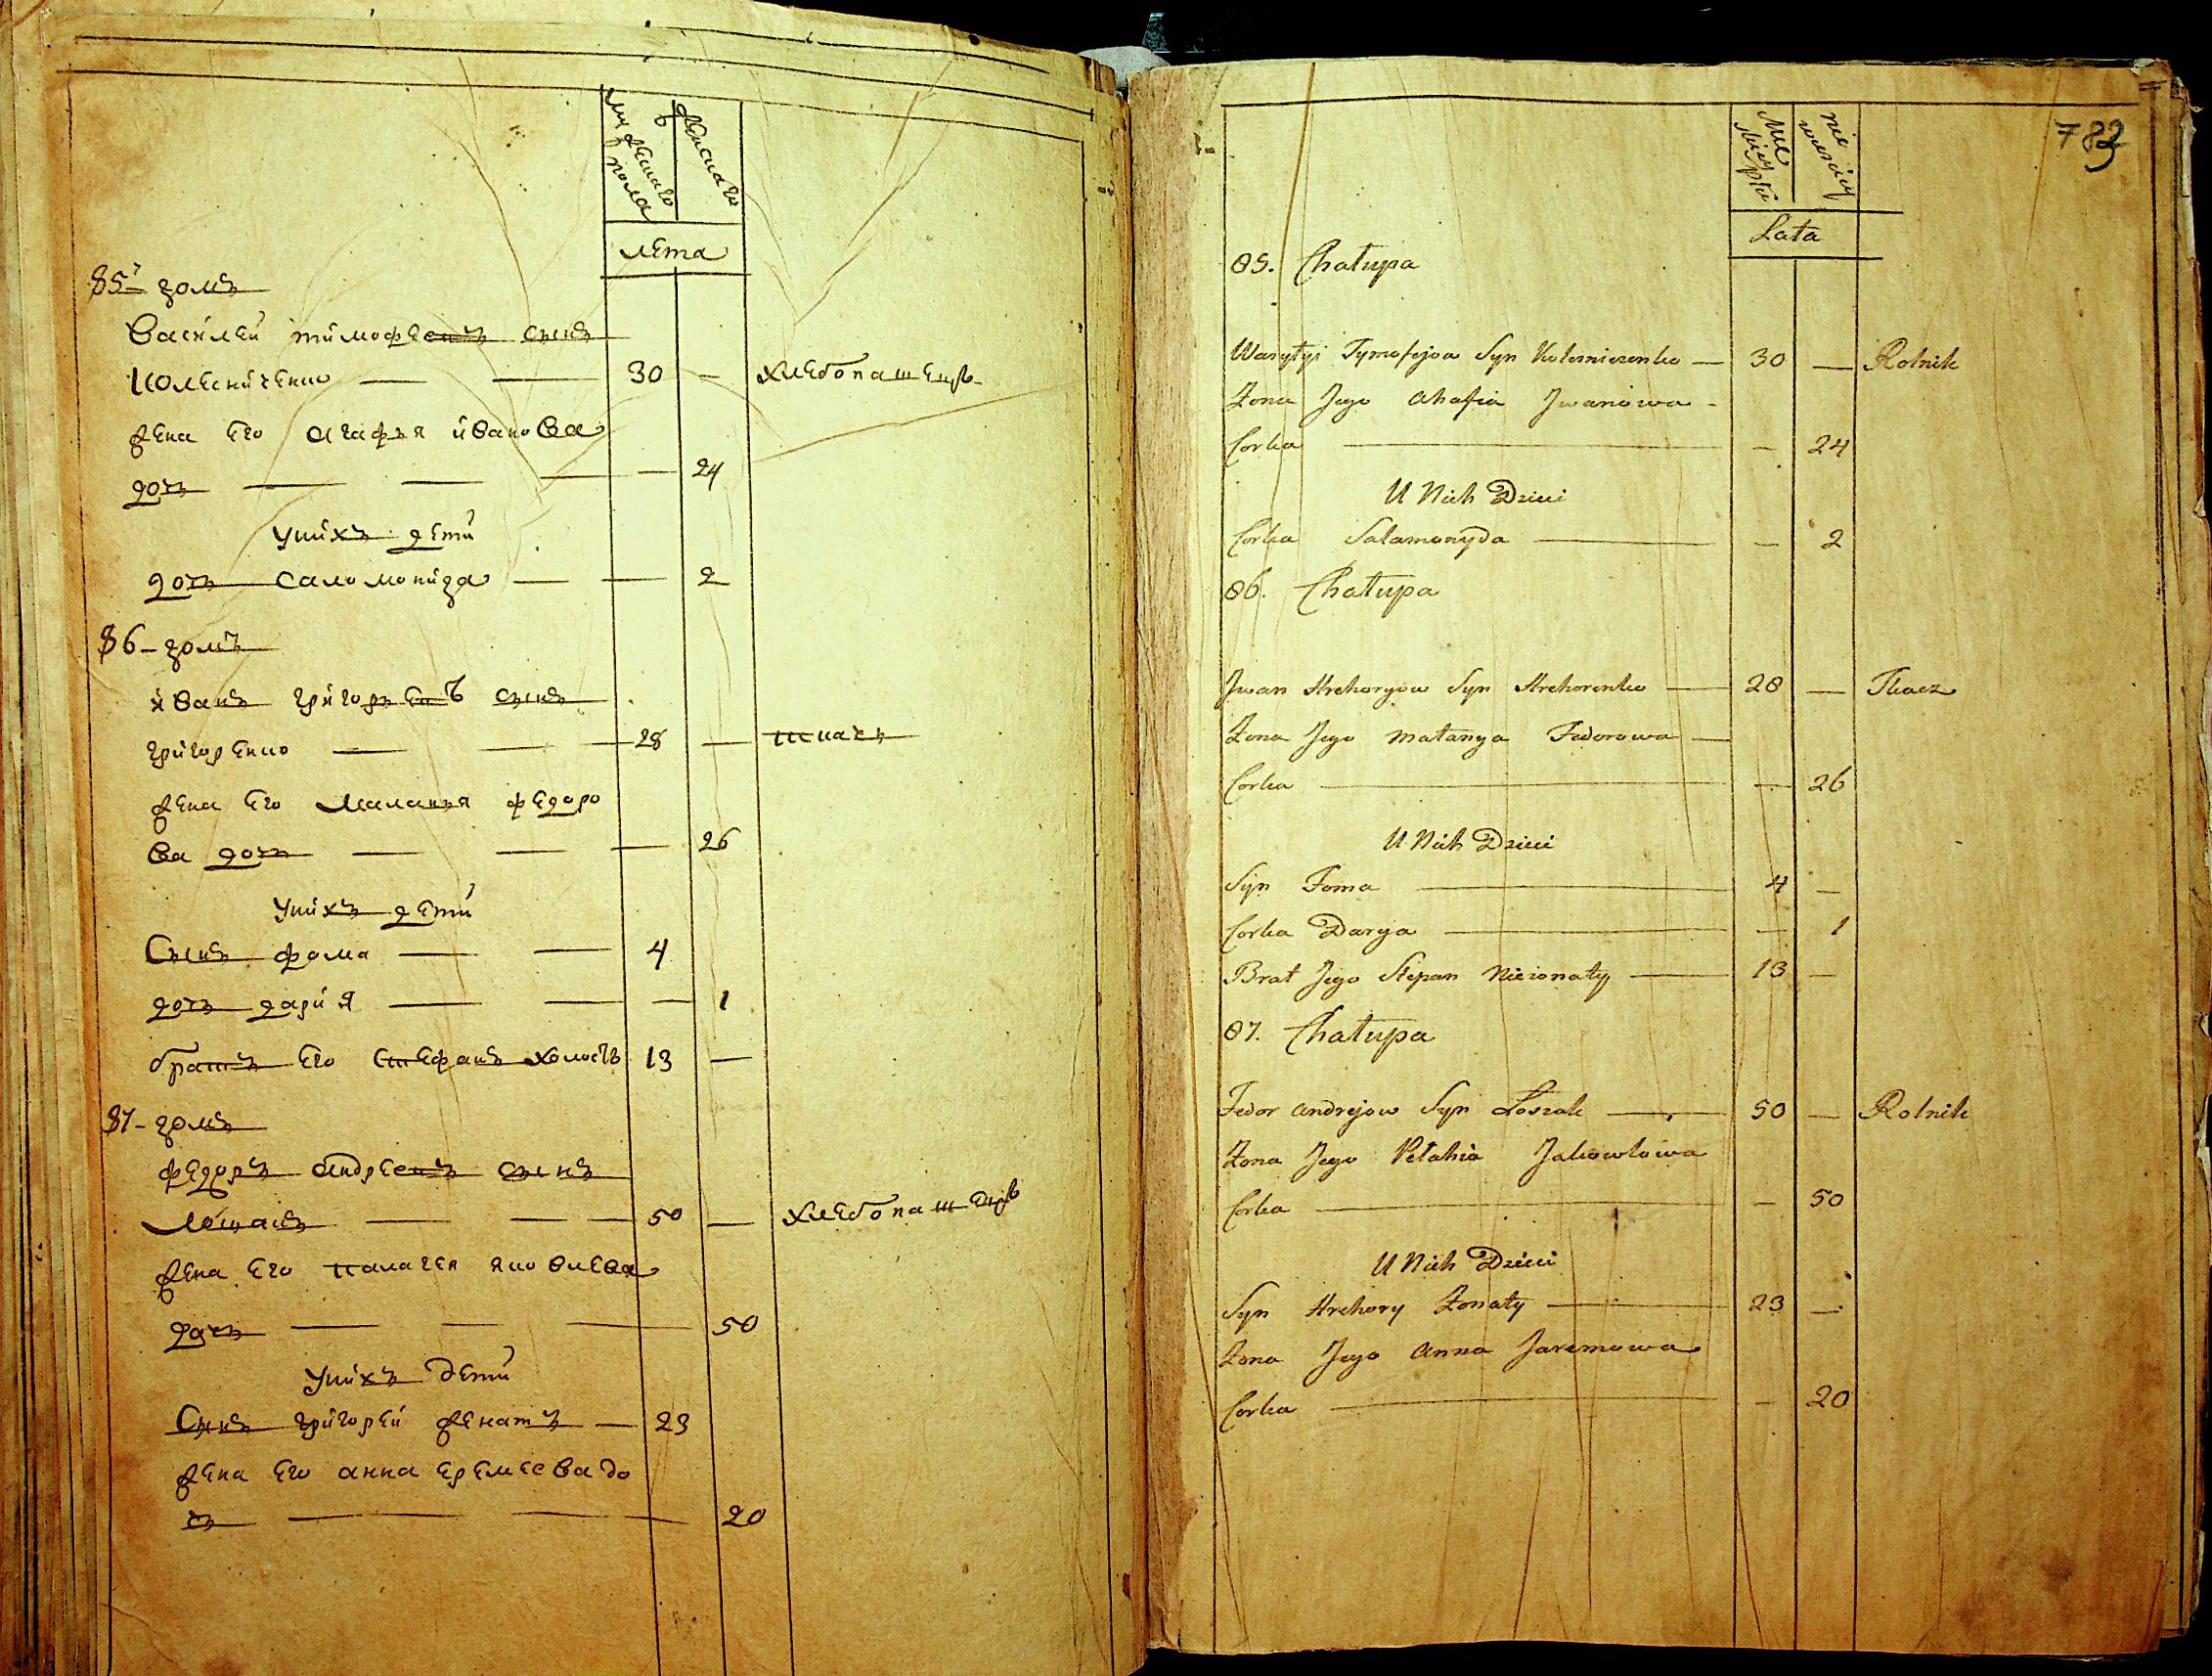 мужеска пола
женска
лета
85й домъ
Василей тимофеевъ сынъ
Колесниченко — — 30 — хлебопашецъ
жена его агафья иванова
дочь — — — — 24
У нихъ дети
дочь саломонида — — 2
86-домъ
иванъ григорьевъ сынъ
григоренко — — — 28 — ткачъ
жена его маланья федоро
ва дочь — — — 26
У нихъ дети
Сынъ фома — — 4
дочь дария — — — 1
братъ его Стефанъ холостъ 13 —
87-домъ
федоръ андреевъ сынъ
Лошакъ — — — 50 — хлебопашецъ
жена его палагея яковлева
дочь — — — 50
У нихъ дети
Сынъ григорей женатъ — 23
жена его анна еремеева до
чь — — — 20
782
Lata
85. Chałupa
Wasylyi Tymofejow Syn Kolesniczenko — 30 — Rolnik
Żona Jego Ahafia Jwanowa -
Corka — — 24
U Nich Dzieci
Corka Sałamonyda — — 2
86. Chałupa
Jwan Hrehoryow Syn Hrehorenko — 28 — Tkacz
Żona Jego Małanya Fedorowa —
Corka — — 26
U Nich Dzieci
Syn Foma — 4 —
Corka Darya — — 1
Brat Jego Stepan Nieżonaty — 13 —
87. Chałupa
Fedor Andrejow Syn Łoszak — 50 — Rolnik
Żona Jego Pełahia Jakowlowa
Corka — — 50
U Nich Dzieci
Syn Hrehory Żonaty — 23 —
Żona Jego Anna Jaremowa
Corka — — 20